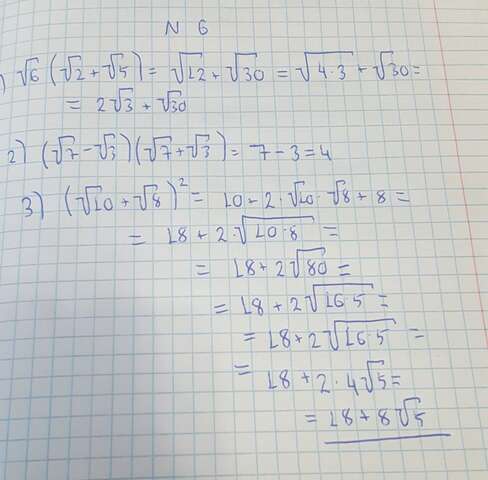 N 6
1) √6 (√2 + √5) = √12 + √30 = √4·3 + √30 =
= 2√3 + √30
2) (√7 - √3)(√7 + √3) = 7 - 3 = 4
3) (√10 + √8)² = 10 - 2·√10·√8 + 8 =
= 18 + 2·√10·8 =
= 18 + 2√80 =
= 18 + 2√16·5 =
= 18 + 2√16·5 =
= 18 + 2·4√5 =
= 18 + 8√5